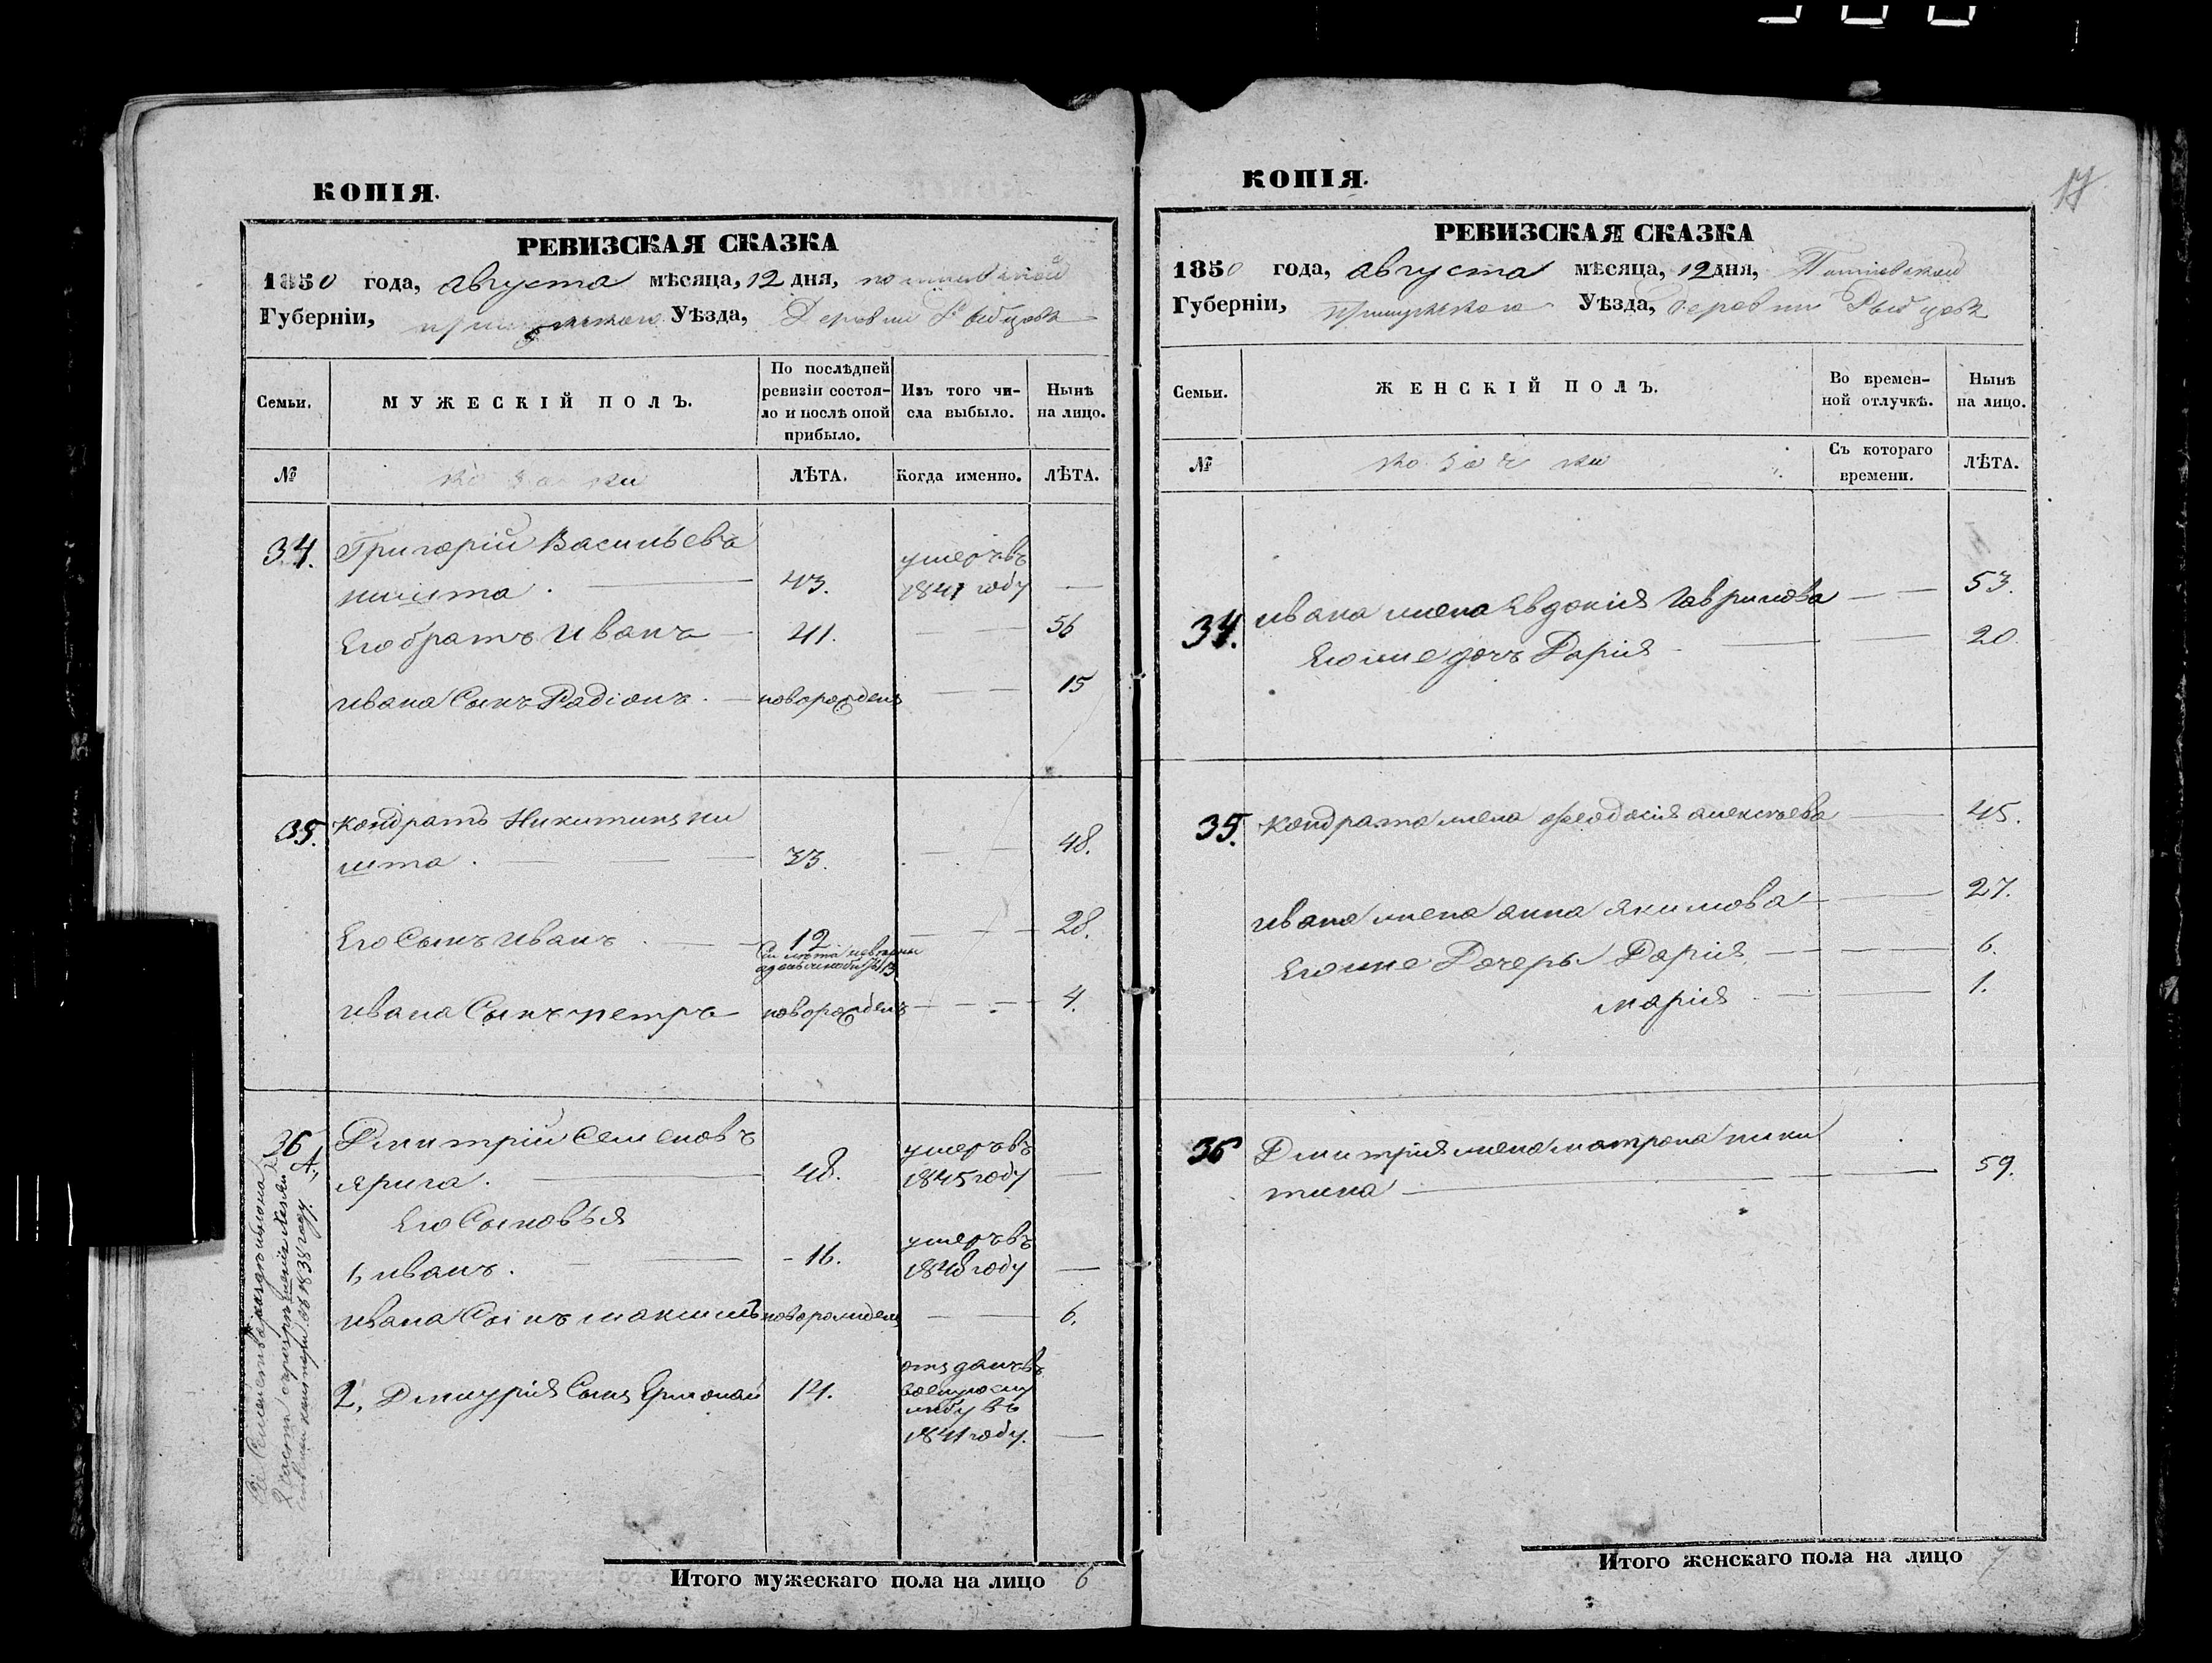 КОПІЯ.
РЕВИЗСКАЯ СКАЗКА
1850 года, августа мѣсяца, 12 дня, полтавской
Губерніи, прилукского Уѣзда, Деревни Рыбцовъ
Семьи.
МУЖЕСКІЙ ПОЛЪ.
По послѣдней ревизіи состоя-
ло и послѣ оной
прибыло.
Изъ того чи-
сла выбыло.
Ныне
на лицо.
№
козаки
ЛѢТА.
Когда именно.
ЛѢТА.
34. Григорій Васильевъ
43. умеръ въ 1841 году —
Его братъ Иванъ — 41. — — 56
ивана Сынъ Радіонъ. — новорожденъ — — 15
35. Кондратъ Никитинъ
33. — — 48.
Его Сынъ Иванъ — 12 — — 28.
ивана Сынъ петръ — новорожденъ — — 4.
36 Дмитрій Семеновъ
ярига. — 48. умеръ въ 1845 году —
Его Сыновья
1, иванъ. — 16. умеръ въ 1848 году —
ивана Сынъ максимъ новорожденъ — — 6.
2, Дмитрія Сынъ 14. отданъ въ
1841 году. —
Итого мужескаго пола на лицо 6
КОПІЯ.
17
РЕВИЗСКАЯ СКАЗКА
1850 года, августа мѣсяца, 12 дня, Полтавской
Губерніи, Прилукского Уѣзда, деревни Рыбцовъ
Семьи.
ЖЕНСКІЙ ПОЛЪ.
Во времен-
ной отлучкѣ.
Нынѣ
на лицо.
№
козачки
Съ котораго
времени.
ЛѢТА.
34. ивана жена Евдокія Гаврилова — — 53.
Его же дочь Дарія — — 20.
35. Кондрата жена феодосія алексѣева — 45.
ивана жена анна якимова — 27.
Его же Дочеры Дарія — — 6.
марія — — 1.
36 Дмитрія жена матрона ники
тина — — 59.
Итого женскаго пола на лицо 7